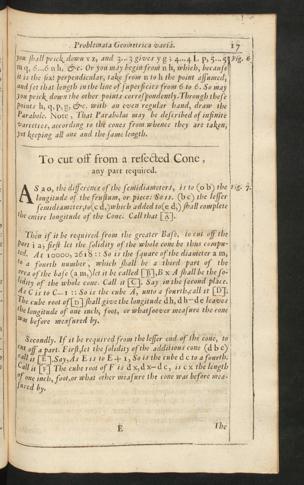 Problemata Geometrica varia. 17
you shall prick down v z, and 3...3 gives y g ; 4...4 l, p, 5...5 Fig. 6
m q, 6...6 n h, &c. Or you may begin from n h, which, because
it is the last perpendicular, take from n to h the point assumed,
and set that length in the line of superficies from 6 to 6. So may
you prick down the other points correspondently. Through these
points h, q, p, g, &c. with an even regular hand, draw the
Parabole. Note, That Parabolas may be described of infinite
varieties, according to the cones from whence they are taken,
yet keeping all one and the same length.
To cut off from a resected Cone,
any part required.
AS a o, the difference of the semidiameters, is to (o b) the Fig. 7.
longitude of the frustum, or piece: So is (b c) the lesser
semidiameter, to (c d,) which added to (c d,) shall complete
the entire longitude of the Cone. Call that [A].
Then if it be required from the greater Base, to cut off the
part i a; first let the solidity of the whole cone be thus compu-
ted. As 10000, 2618 :: So is the square of the diameter a m,
to a fourth number, which shall be a third part of the
area of the base (a m,) let it be called [B], B x A shall be the so-
lidity of the whole cone. Call it [C]. Say in the second place,
As C is to C—1 :: So is the cube A, unto a fourth, call it [D].
The cube root of [D] shall give the longitude d h, d h—d e leaves
the longitude of one inch, foot, or whatsoever measure the cone
was before measured by.
Secondly. If it be required from the lesser end of the cone, to
cut off a part. First, let the solidity of the additious cone (d b c)
call it [E]. Say, As E is to E+1, So is the cube d c to a fourth.
Call it [F] The cube root of F is d x, d x—d c, is c x the length
of one inch, foot, or what other measure the cone was before mea-
sured by.
E The